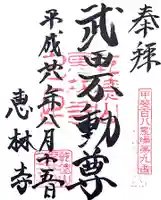 奉拝
甲斐百八霊場第九番
武田不動尊
平成廿八年八月十五日
恵林寺